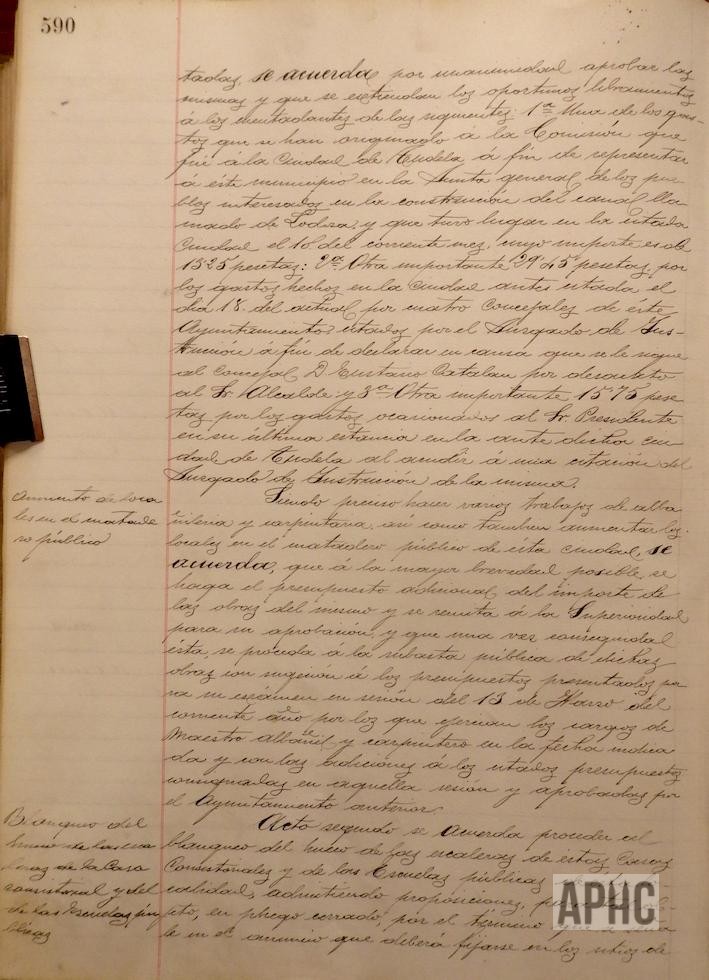 590
tadas, se acuerda por unanimidad aprobar las
mismas y que se extiendan los oportunos libramientos
á los mentadantes de las siguientes: 1ª Una de los gas-
tos que se han originado á la Comisión que
fué á la Ciudad de Tudela á fin de representar
á éste municipio en la Junta general de los pue
blos interesados en la construción del canal lla
mado de Lodosa, y que tuvo lugar en la citada
Ciudad el 18 del corriente mez, cuyo importe es de
13'25 pesetas: 2ª Otra importante 29'45 pesetas por
los gastos hechos en la Ciudad antes citada el
dia 18 del actual por cuatro Concejales de éste
Ayuntamiento, citados por el Juzgado de Ins-
trucción á fin de declarar en causa que se le sigue
al Concejal D. Eustasio Catalan por desacato
al Sr. Alcalde: y 3ª Otra importante 15'75 pese
tas por los gastos ocasionados al Sr. Presidente
en su última estancia en la ante dicha ciu
dad de Tudela al acudir á una citación del
Juzgado de Instrucción de la misma.
Aumento de loca
les en el matade
ro público
Siendo preciso hacer varios trabajos de alba
ñileria y carpinteria, asi como tambien aumentar los
locales en el matadero público de ésta ciudad, se
acuerda, que á la mayor brevedad posible, se
haga el presupuesto adicional del importe de
las obras del mismo y se remita á la Superioridad
para su aprobación, y que una vez conseguida
ésta, se proceda á la subasta pública de dichas
obras con sugeción á los presupuestos presentados pa
ra su exámen en sesión del 13 de Marzo del
corriente año por los que ejercian los cargos de
Maestro albañil y carpintero en la fecha indica
da y con las adiciones á los citados presupuestos
consignadas en aquella sesión y aprobadas por
el Ayuntamiento anterior.
Blanqueo del
hueco de las esca
leras de la Casa
consistorial y del
de las Escuelas pú
blicas
Acto segundo se acuerda proceder al
blanqueo del hueco de las escaleras de estas Casas
Consistoriales y de las Escuelas públicas
calidad, admitiendo proposiciones,
en pliego cerrado, por el término que se seña
le en el anuncio que deberá fijarse en los sitios de
APHC